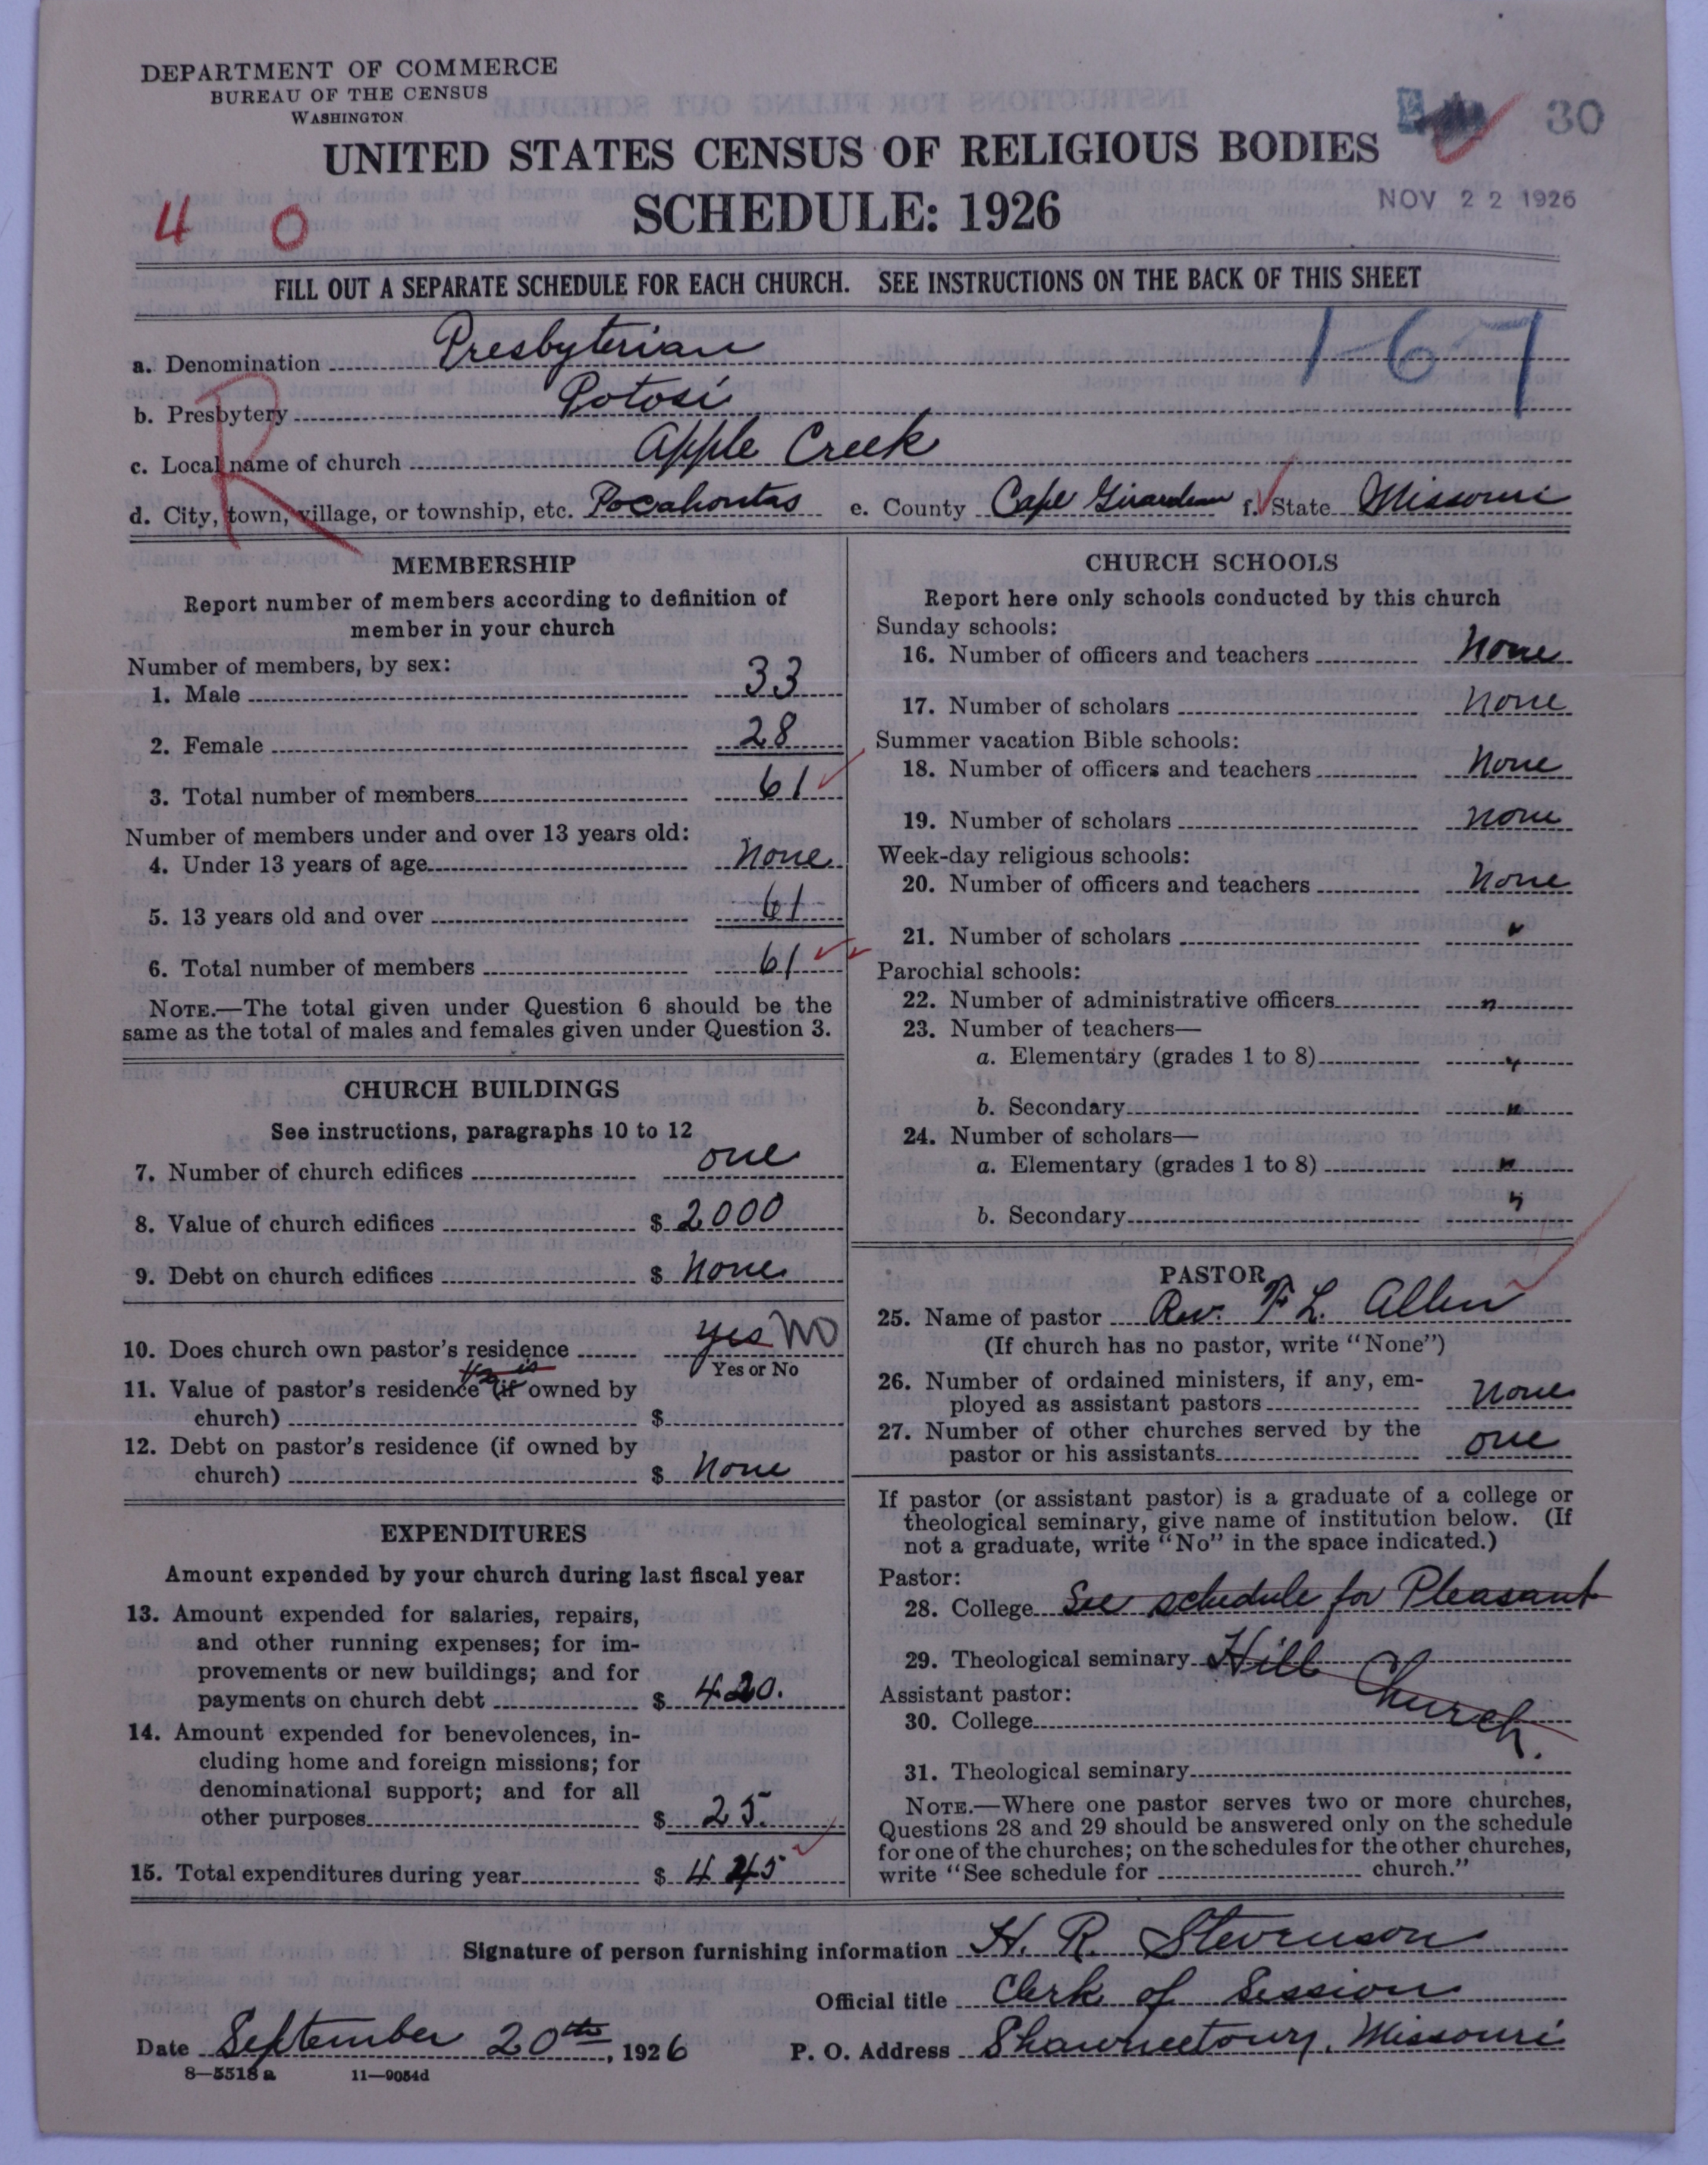 DEPARTMENT OF COMMERCE
BUREAU OF THE CENSUS
WASHINGTON
30
UNITED STATES CENSUS OF RELIGIOUS BODIES
SCHEDULE: 1926
NOV 22 1926
4 0
FILL OUT A SEPARATE SCHEDULE FOR EACH CHURCH. SEE INSTRUCTIONS ON THE BACK OF THIS SHEET
1-6-7
a. Denomination Presbyterian
b. Presbytery Potosi
R
c. Local name of church Apple Creek
d. City, town, village, or township, etc. Pocahontas e. County Cape Girardeau f. State Missouri
MEMBERSHIP
Report number of members according to definition of
member in your church
Number of members, by sex:
1. Male 33
2. Female 28
3. Total number of members 61
Number of members under and over 13 years old:
4. Under 13 years of age None
5. 13 years old and over 61
6. Total number of members 61
NOTE.—The total given under Question 6 should be the
same as the total of males and females given under Question 3.
CHURCH BUILDINGS
See instructions, paragraphs 10 to 12
7. Number of church edifices one
8. Value of church edifices $ 2000
9. Debt on church edifices $ None
10. Does church own pastor's residence yes NO
Yes or No
11. Value of pastor's residence (if owned by
church) $
12. Debt on pastor's residence (if owned by
church) $ None
EXPENDITURES
Amount expended by your church during last fiscal year
13. Amount expended for salaries, repairs,
and other running expenses; for im-
provements or new buildings; and for
payments on church debt $ 420.
14. Amount expended for benevolences, in-
cluding home and foreign missions; for
denominational support; and for all
other purposes $ 25.
15. Total expenditures during year $ 445
CHURCH SCHOOLS
Report here only schools conducted by this church
Sunday schools:
16. Number of officers and teachers None
17. Number of scholars None
Summer vacation Bible schools:
18. Number of officers and teachers None
19. Number of scholars None
Week-day religious schools:
20. Number of officers and teachers None
21. Number of scholars "
Parochial schools:
22. Number of administrative officers "
23. Number of teachers—
a. Elementary (grades 1 to 8) "
b. Secondary "
24. Number of scholars—
a. Elementary (grades 1 to 8) "
b. Secondary "
PASTOR
25. Name of pastor Rev. F L. Allen
(If church has no pastor, write "None")
26. Number of ordained ministers, if any, em-
ployed as assistant pastors None
27. Number of other churches served by the
pastor or his assistants one
If pastor (or assistant pastor) is a graduate of a college or
theological seminary, give name of institution below. (If
not a graduate, write "No" in the space indicated.)
Pastor:
28. College See schedule for Pleasant
29. Theological seminary Hill Church.
Assistant pastor:
30. College
31. Theological seminary
NOTE.—Where one pastor serves two or more churches,
Questions 28 and 29 should be answered only on the schedule
for one of the churches; on the schedules for the other churches,
write "See schedule for church."
Signature of person furnishing information H. R. Stevenson
Official title Clerk of Session
Date September 20th, 1926 P. O. Address Shawneetown, Missouri
8—5518a 11—9054d